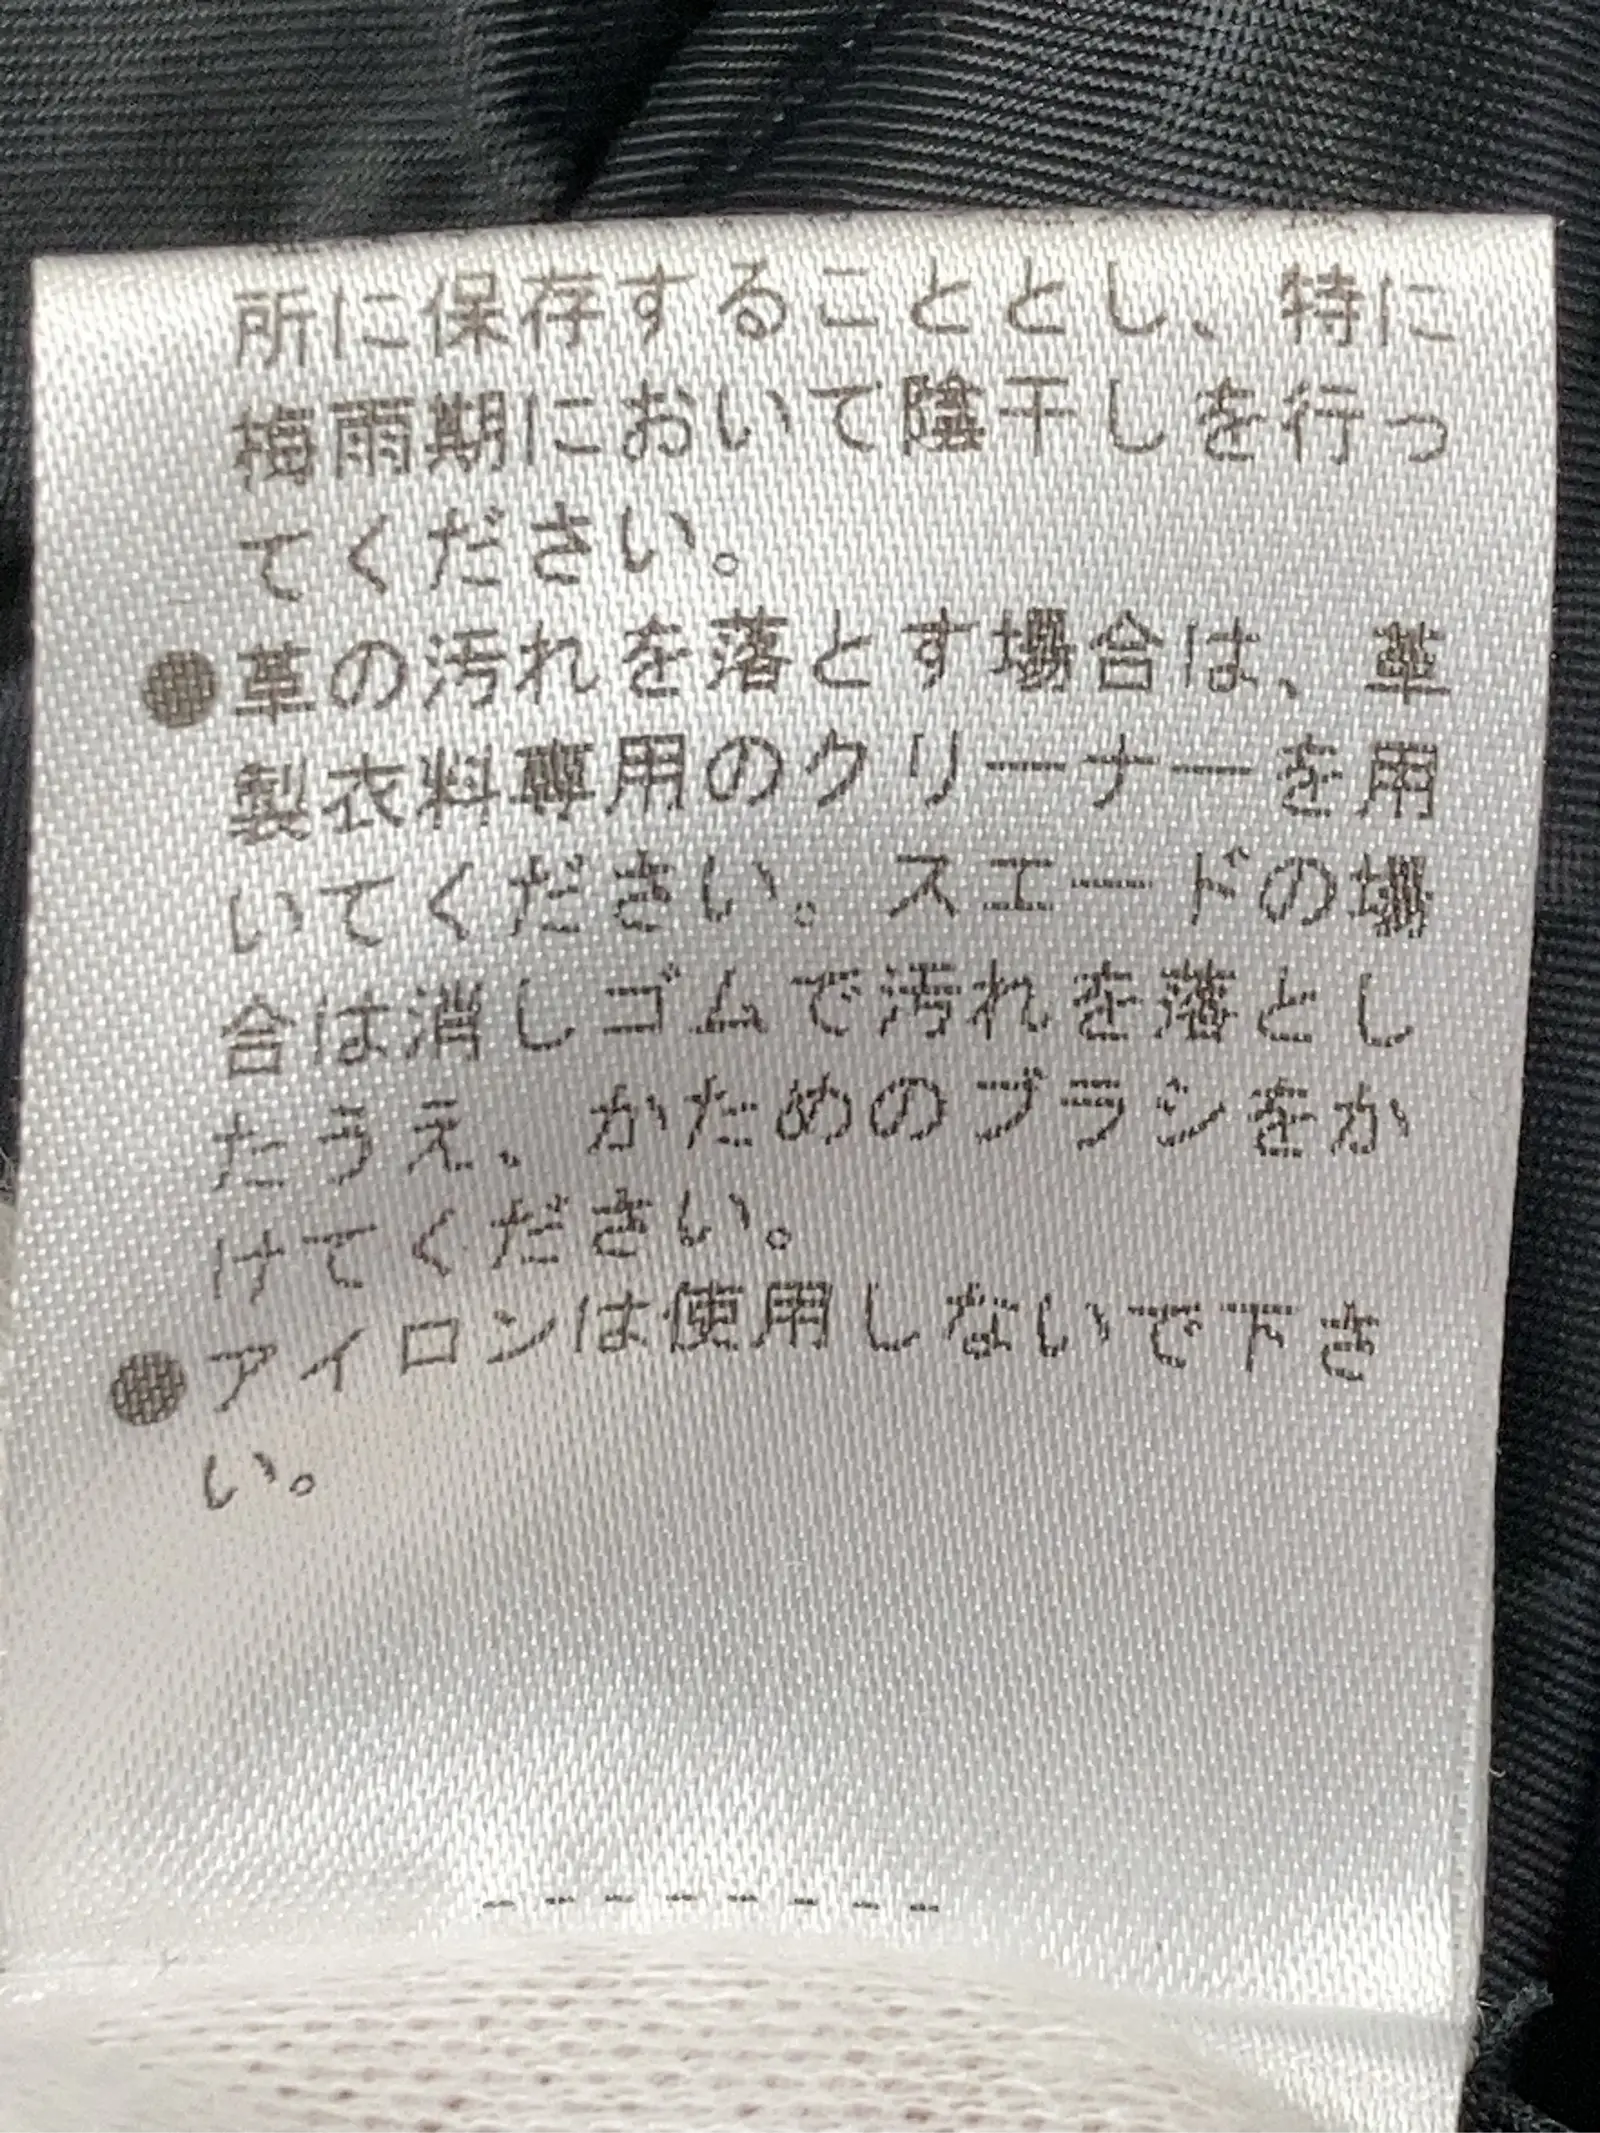 所に保存することとし、特に
梅雨期において陰干しを行っ
てください。
●革の汚れを落とす場合は、革
製衣料専用のクリーナーを用
いてください。スエードの場
合は消しゴムで汚れを落とし
たうえ、かためのブラシをか
けてください。
●アイロンは使用しないで下さ
い。